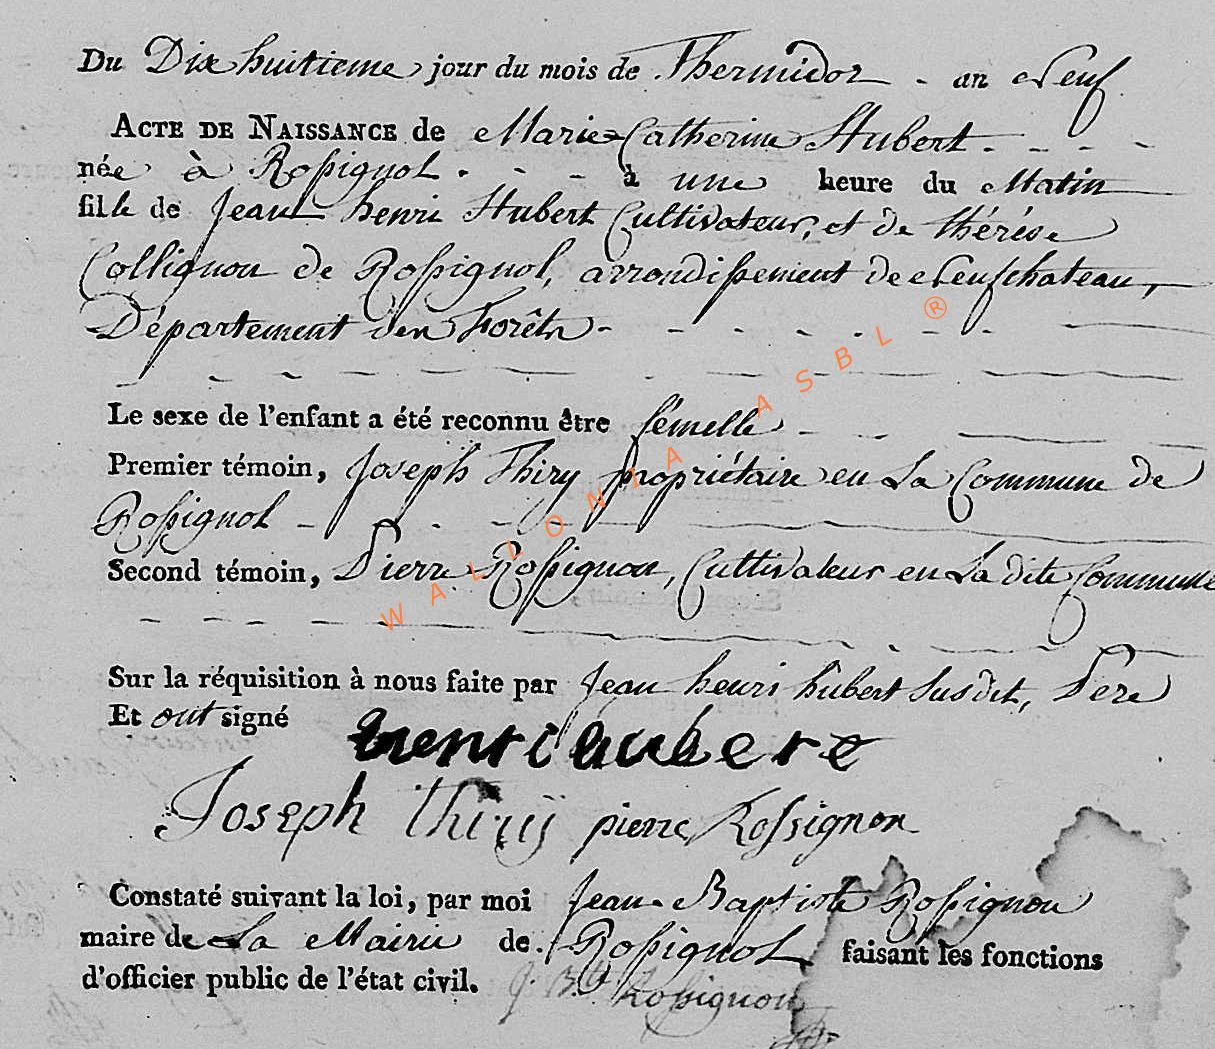 Du Dix huitieme jour du mois de Thermidor - an Neuf
ACTE DE NAISSANCE de Marie Catherine Hubert - - - -
née à Rossignol - - - à une heure du Matin
fille de Jean henri Hubert Cultivateur, et de thérése
Collignon de Rossignol, arrondissement de Neufchateau,
Département des Forêts - - - - - - -
Le sexe de l'enfant a été reconnu être fémelle - - -
Premier témoin, Joseph Thiry propriétaire en La Commune de
Rossignol - - - -
Second témoin, Pierre Rossignon, Cultivateur en La dite Commune
Sur la réquisition à nous faite par Jean henri hubert Susdit, Pere
Et ont signé
henri hubert
Joseph thirÿ pierre Rossignon
Constaté suivant la loi, par moi Jean Baptiste Rossignon
maire de La Mairie de Rossignol faisant les fonctions
d'officier public de l'état civil. J. Bte Rossignon
WALLONIA ASBL ®